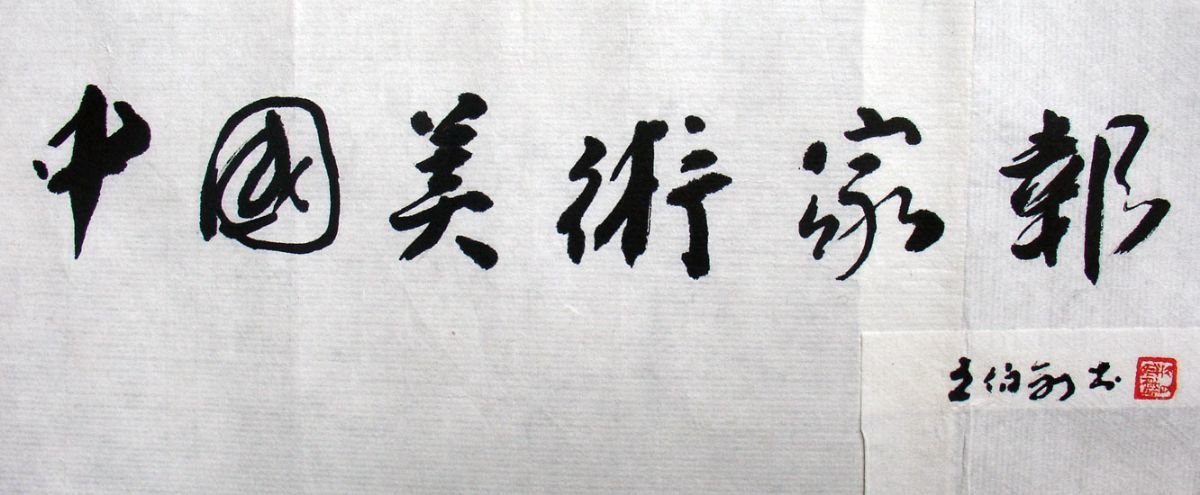 中國美術家報
王伯敏书